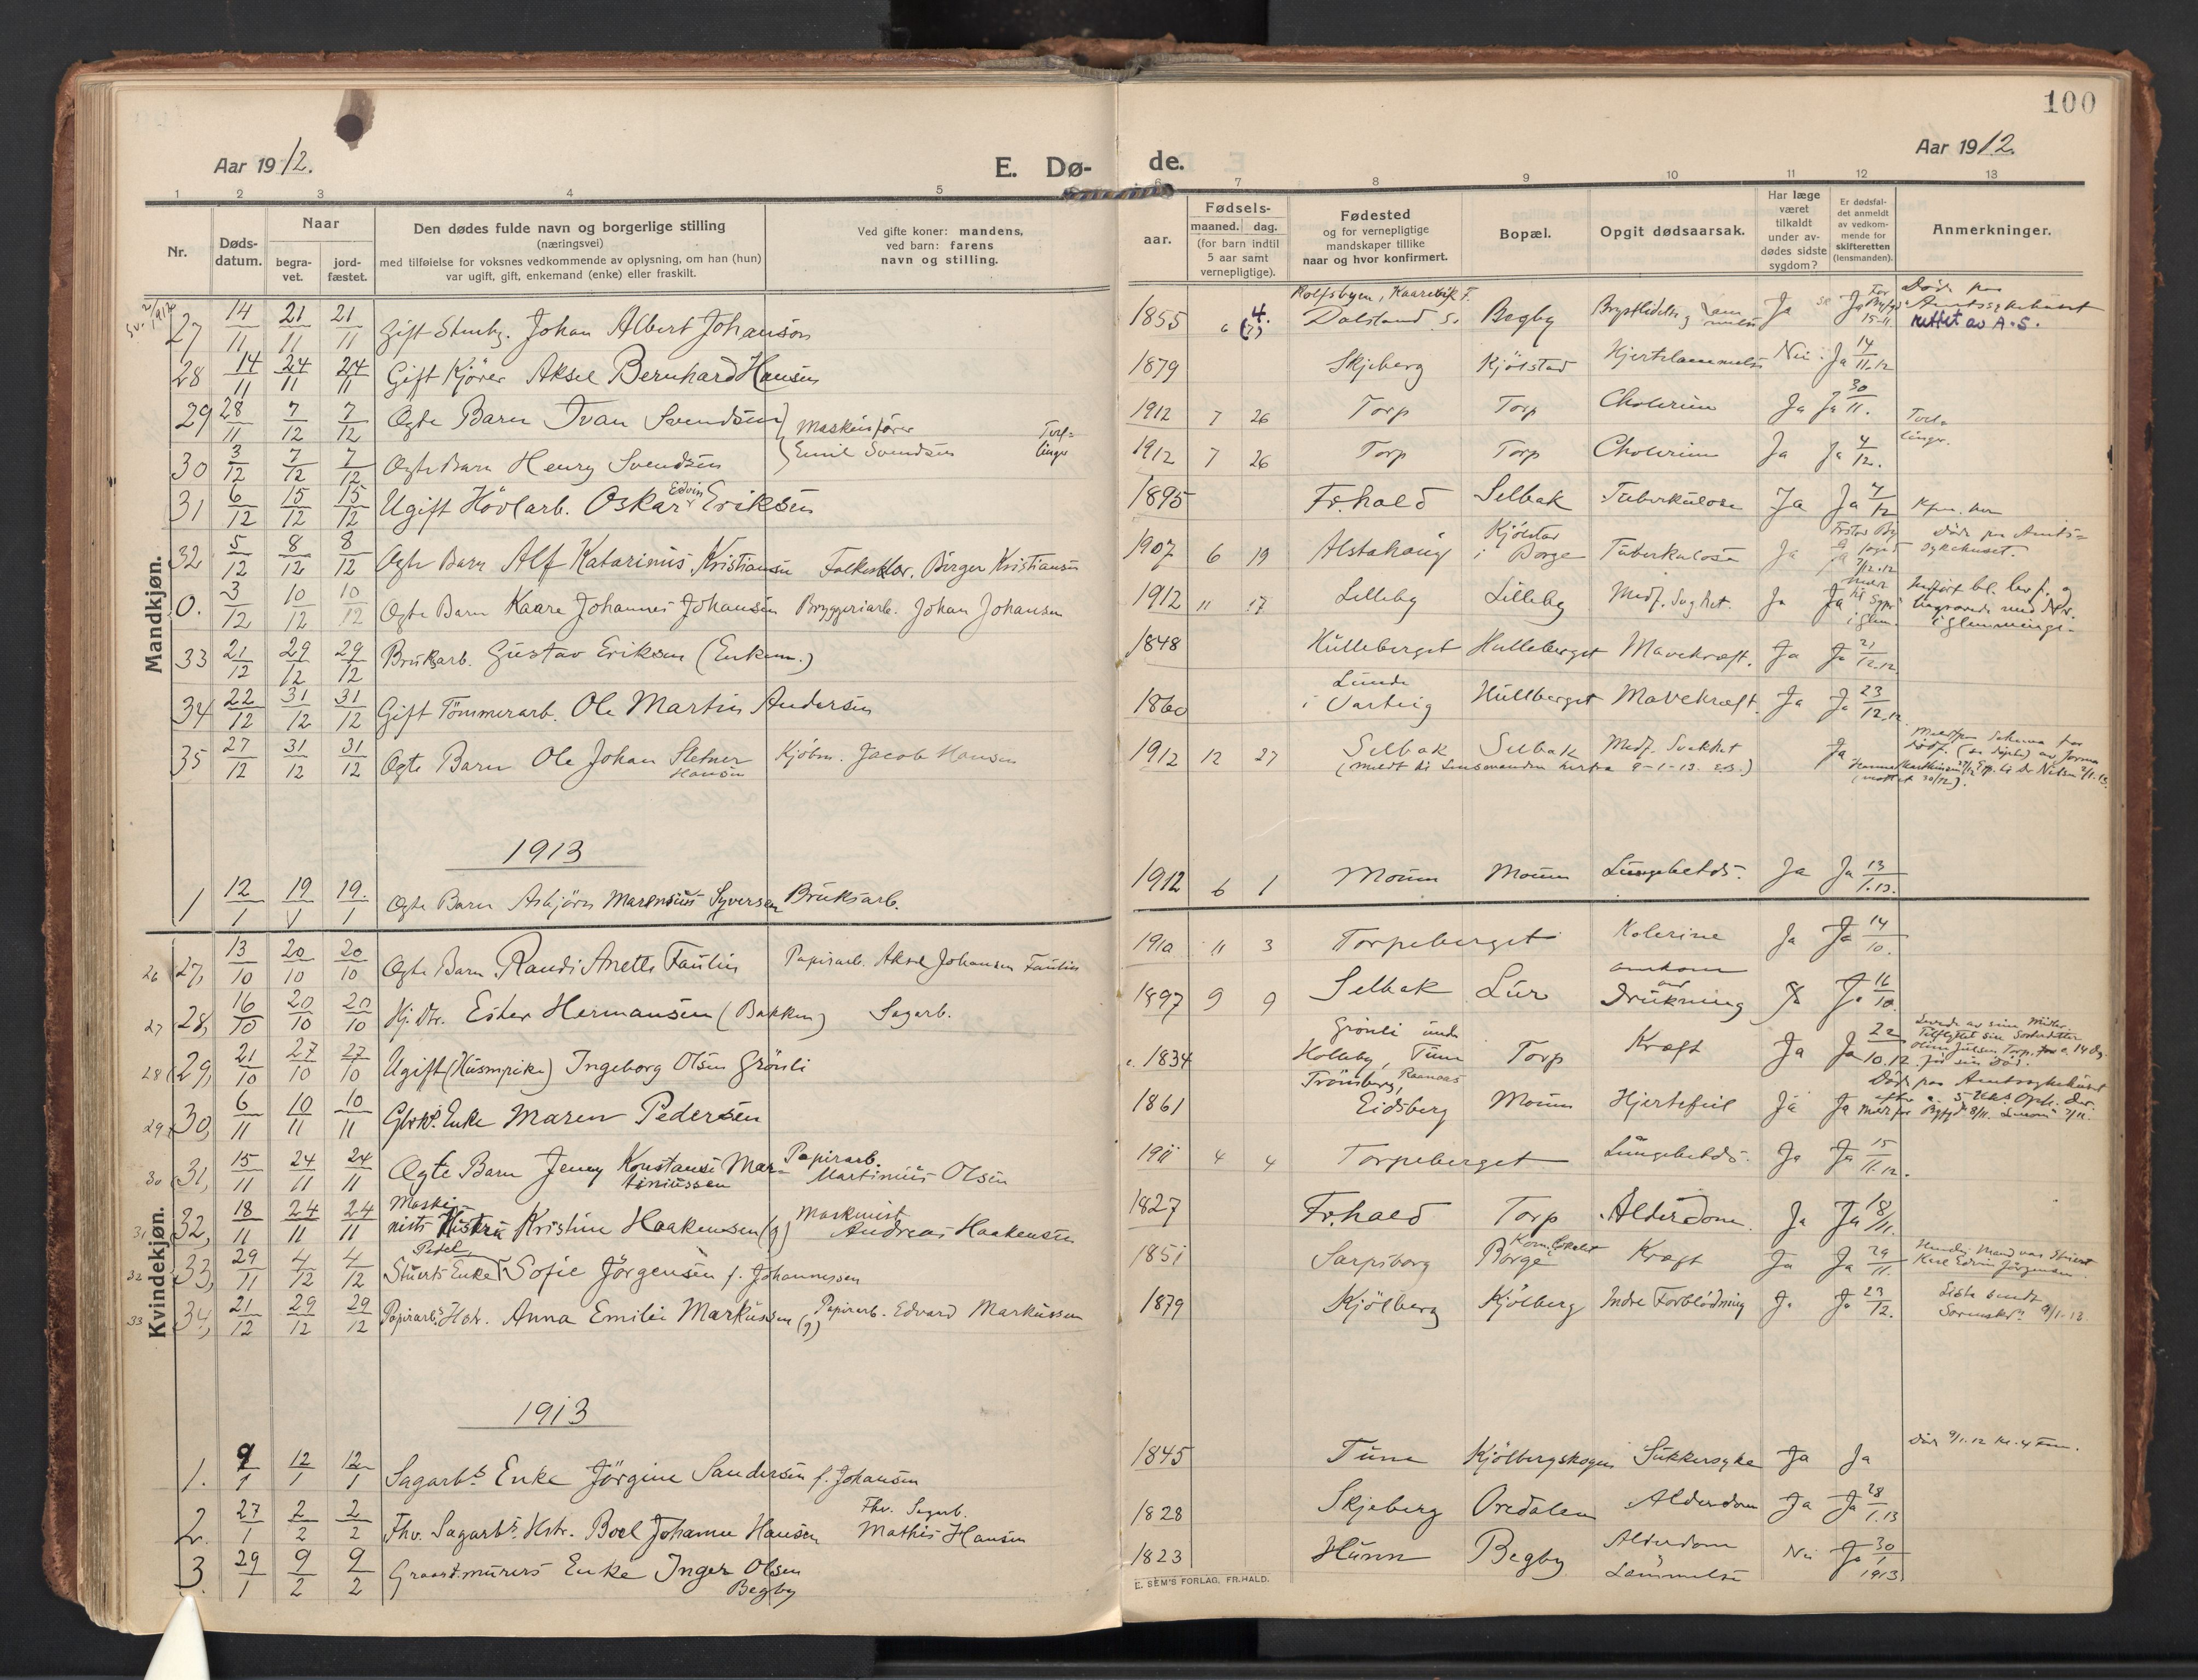 100
Aar 1912.
E. Dø-
de.
Aar 1912.
1 2 3 4 5 6 7 8 9 10 11 12 13
Nr.
Døds-
datum.
Naar
begra-
vet.
jord-
fæstet.
Den dødes fulde navn og borgerlige stilling
(næringsvei)
med tilføielse for voksnes vedkommende av oplysning, om han (hun)
var ugift, gift, enkemand (enke) eller fraskilt.
Ved gifte koner: mandens,
ved barn: farens
navn og stilling.
Fødsels-
aar.
maaned. dag.
(for barn indtil
5 aar samt
vernepligtige).
Fødested
og for vernepligtige
mandskaper tillike
naar og hvor konfirmert.
Bopæl.
Opgit dødsaarsak.
Har læge
været
tilkaldt
under av-
dødes sidste
sygdom?
Er dødsfal-
det anmeldt
av vedkom-
mende for
skifteretten
(lensmanden).
Anmerkninger.
Mandkjøn.
27 14/11 21/11 21/11 Gift Johan Albert Johanson 1855 6 4. (7) Rolfsbyen, Dalsland S. Begby Ja Ja 15-11 Død paa Amtssykehuset rettet av A.S.
28 14/11 24/11 24/11 Gift Kjører Aksel Bernhard Hansen 1879 Skjeberg Kjölstad Hjertelammelse Nei Ja 14/11.12
29 28/11 7/12 7/12 Ægte Barn Ivan Svendsen Maskinfører Emil Svendsen 1912 7 26 Torp Torp Cholerine Ja Ja 30/11. Tvillinger.
30 3/12 7/12 7/12 Ægte Barn Henry Svendsen 1912 7 26 Torp Torp Cholerine Ja Ja 4/12.
31 6/12 15/12 15/12 Ugift Hövlarb. Oskar Edvin Eriksen 1895 Fr.hald Selbak Tuberkulose Ja Ja 7/12
32 5/12 8/12 8/12 Ægte Barn Alf Katarinus Kristiansen Birger Kristiansen 1907 6 19 Alstahaug Kjölstad i Borge Tuberkulose Ja Ja 7/12.12 Död paa Amtssykehuset.
0. 3/12 10/12 10/12 Ægte Barn Kaare Johannes Johansen Bryggeriarb. Johan Johansen 1912 11 17 Lilleby Lilleby Medf. Svaghet. Ja Ja
33 21/12 29/12 29/12 Bruksarb. Gustav Eriksen (Enkem.) 1848 Hulleberget Hulleberget Mavekræft. Ja Ja 21/12.12
34 22/12 31/12 31/12 Gift Tömmerarb. Ole Martin Andersen 1860 Lunde i Varteig Hullberget Mavekræft. Ja Ja 23/12.12
35 27/12 31/12 31/12 Ægte Barn Ole Johan Sletner Hansen Kjöbm. Jacob Hansen 1912 12 27 Selbak Selbak Medf. Svakhet Ja
(meldt til Lensmanden herfra 9-1-13.)
1913
1 12/1 19/1 19/1 Ægte Barn Asbjörn Marensius Syversen Bruksarb. 1912 6 1 Moum Moum Lungebetds. Ja Ja 13/1.13.
Kvindekjøn.
26 27, 13/10 20/10 20/10 Ægte Barn Randi Anette Faulin Papirarb. Aksel Johansen Faulin 1910 11 3 Torpeberget Kolerine Ja Ja 14/10.
27 28, 16/10 20/10 20/10 Hj. dtr. Ester Hermansen (Bakken) Sagarb. 1897 9 9 Selbak Lur omkom ved Drukning Ja 16/10.
28 29, 21/10 27/10 27/10 Ugift (Husmpike) Ingeborg Olsen Grönli c. 1834 Grönli unde Holleby, Tune Torp Kræft Ja Ja 22/10.12
29 30, 6/11 10/11 10/11 Enke Maren Pedersen 1861 Trömborg, Eidsberg Moum Hjertefeil Ja Ja Död paa Amtssykehuset
30 31, 15/11 24/11 24/11 Ægte Barn Jenny Konstanse Martiniussen Papirarb. Martinius Olsen 1911 4 4 Torpeberget Lungebetds. Ja Ja 15/11.12.
31 32, 18/11 24/11 24/11 Maskinists Hustru Kristine Haakensen (g) Maskinist Andreas Haakensen 1827 Fr.hald Torp Alderdom. Ja Ja 18/11.
32 33, 29/11 4/12 4/12 Stuerts Enke Petel Sofie Jörgensen f. Johannessen 1851 Sarpsborg Borge Kræft Ja Ja 29/11. Hendes Mand var Stuert Karl Edvin Jörgensen.
33 34, 21/12 29/12 29/12 Papirarb.s Hstr. Anna Emilie Markussen (g) Papirarb. Edvard Markussen 1879 Kjölberg Kjölberg Indre Forblödning Ja Ja 23/12. Liste sendt Sorenskr. 9/1-13.
1913
1. 9/1 12/1 12/1 Sagarb.s Enke Jörgine Sandersen f. Johansen 1845 Tune Kjölbergskogen Sukkersyke Ja Ja Död 9/1.12 kl. 4 Fm.
2. 27/1 2/2 2/2 Fhv. Sagarb.s Hstr. Boel Johanne Hansen Fhv. Sagarb. Mathis Hansen 1828 Skjeberg Oredalen Alderdom Ja Ja 28/1.13
3. 29/1 9/2 9/2 Graast.murers Enke Inger Olsen Begby 1823 Hunn Begby Alderdom Lammelse Nei Ja 30/1 1913
E. SEM'S FORLAG, FR.HALD.